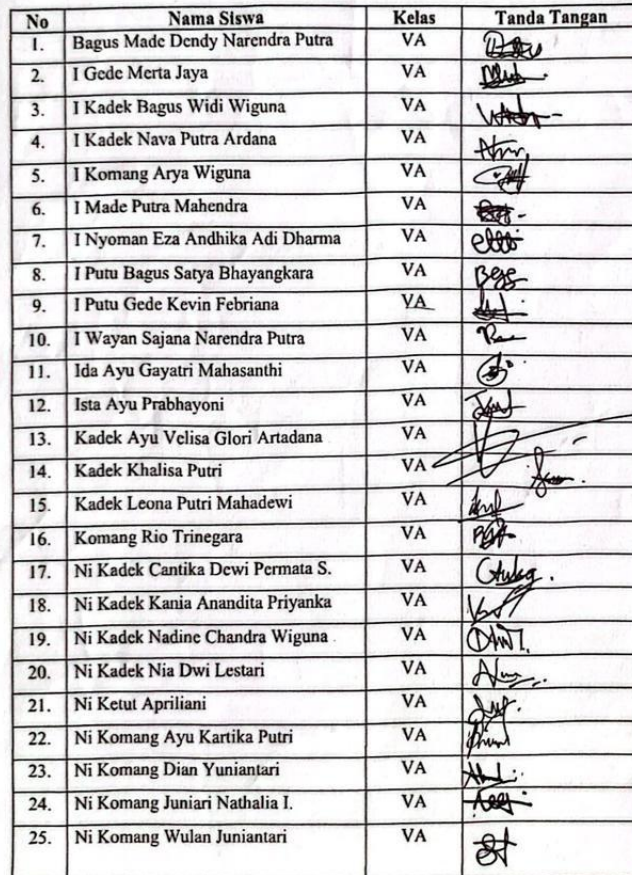 No Nama Siswa Kelas Tanda Tangan
1. Bagus Made Dendy Narendra Putra VA
2. I Gede Merta Jaya VA
3. I Kadek Bagus Widi Wiguna VA
4. I Kadek Nava Putra Ardana VA
5. I Komang Arya Wiguna VA
6. I Made Putra Mahendra VA
7. I Nyoman Eza Andhika Adi Dharma VA
8. I Putu Bagus Satya Bhayangkara VA
9. I Putu Gede Kevin Febriana VA
10. I Wayan Sajana Narendra Putra VA
11. Ida Ayu Gayatri Mahasanthi VA
12. Ista Ayu Prabhayoni VA
13. Kadek Ayu Velisa Glori Artadana VA
14. Kadek Khalisa Putri VA
15. Kadek Leona Putri Mahadewi VA
16. Komang Rio Trinegara VA
17. Ni Kadek Cantika Dewi Permata S. VA
18. Ni Kadek Kania Anandita Priyanka VA
19. Ni Kadek Nadine Chandra Wiguna VA
20. Ni Kadek Nia Dwi Lestari VA
21. Ni Ketut Apriliani VA
22. Ni Komang Ayu Kartika Putri VA
23. Ni Komang Dian Yuniantari VA
24. Ni Komang Juniari Nathalia I. VA
25. Ni Komang Wulan Juniantari VA